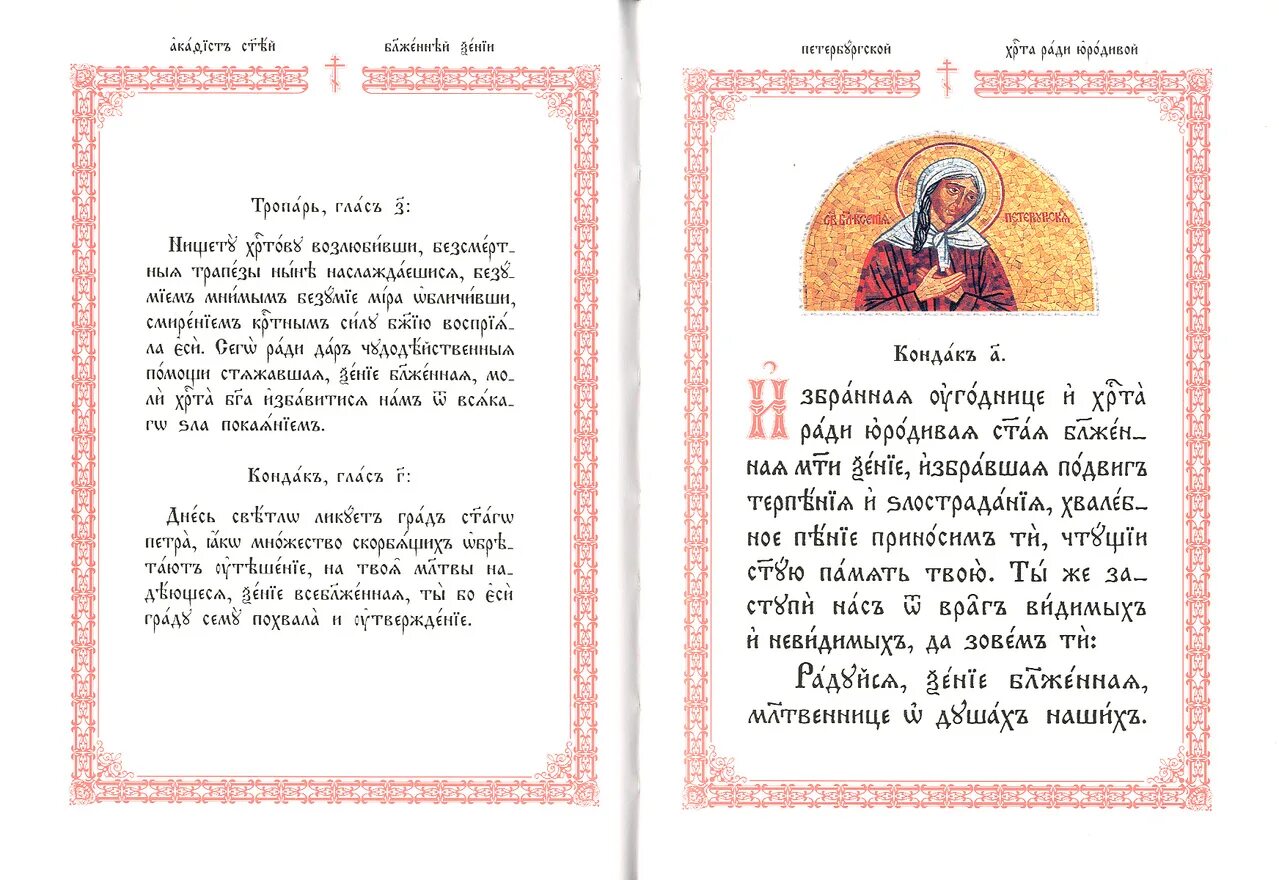 а҆ка́ѳїстъ ст҃ѣ́й бл҃же́ннѣй ѯе́нїи
Тропа́рь, гла́съ з҃:
Нищетꙋ̀ хр҇то́вꙋ возлюби́вши, безсме́рт_
ныя трапе́зы ны́нѣ наслажда́ешися, безꙋ́_
мїемъ мни́мымъ безꙋ́мїе мі́ра ѡ҆бличи́вши,
смире́нїемъ крⷭ҇тнымъ си́лꙋ бж҃їю воспрїѧ́_
ла є҆сѝ. Сегѡ̀ ра́ди да́ръ чꙋдодѣ́йственныя
по́мощи стѧжа́вшая, ѯе́нїе бл҃же́нная, мо_
лѝ хрⷭ҇та̀ бг҃а и҆зба́витися на́мъ ѿ всѧ́ка_
гѡ ѕла̀ покаѧ́нїемъ.
Конда́къ, гла́съ г҃:
Дне́сь свѣ́тлѡ ликꙋ́етъ гра́дъ ст҃а́гѡ
петра̀, ꙗ҆́кѡ мно́жество скорбѧ́щихъ ѡ҆брѣ_
та́ютъ ᲂу҆тѣше́нїе, на твоѧ̑ мл҃твы на_
дѣ́ющеся, ѯе́нїе всебл҃же́нная, ты́ бо є҆сѝ
гра́дꙋ семꙋ̀ похвала̀ и ᲂу҆твержде́нїе.
петербꙋ́ргской хрⷭ҇та̀ ра́ди ю҆ро́дивой
СВ БЛ КСЕНІЯ ПЕТЕРБУРГСКАЯ
Конда́къ а҃.
И҆збра́нная ᲂу҆го́днице и҆ хрⷭ҇та̀
ра́ди ю҆ро́дивая ст҃а́я бл҃же́н_
ная мт҃и ѯе́нїе, и҆збра́вшая по́двигъ
терпѣ́нїѧ и҆ ѕлострада́нїѧ, хвале́б_
ное пѣ́нїе прино́симъ тѝ, чтꙋ́щїи
ст҃ꙋ́ю па́мѧть твою̀. Ты́ же за_
стꙋпѝ на́съ ѿ вра̑гъ ви́димыхъ
и҆ неви́димыхъ, да зове́мъ тѝ:
Ра́дꙋйсѧ, ѯе́нїе бл҃же́нная,
мл҃твеннице ѡ҆ дꙋша́хъ на́шихъ.